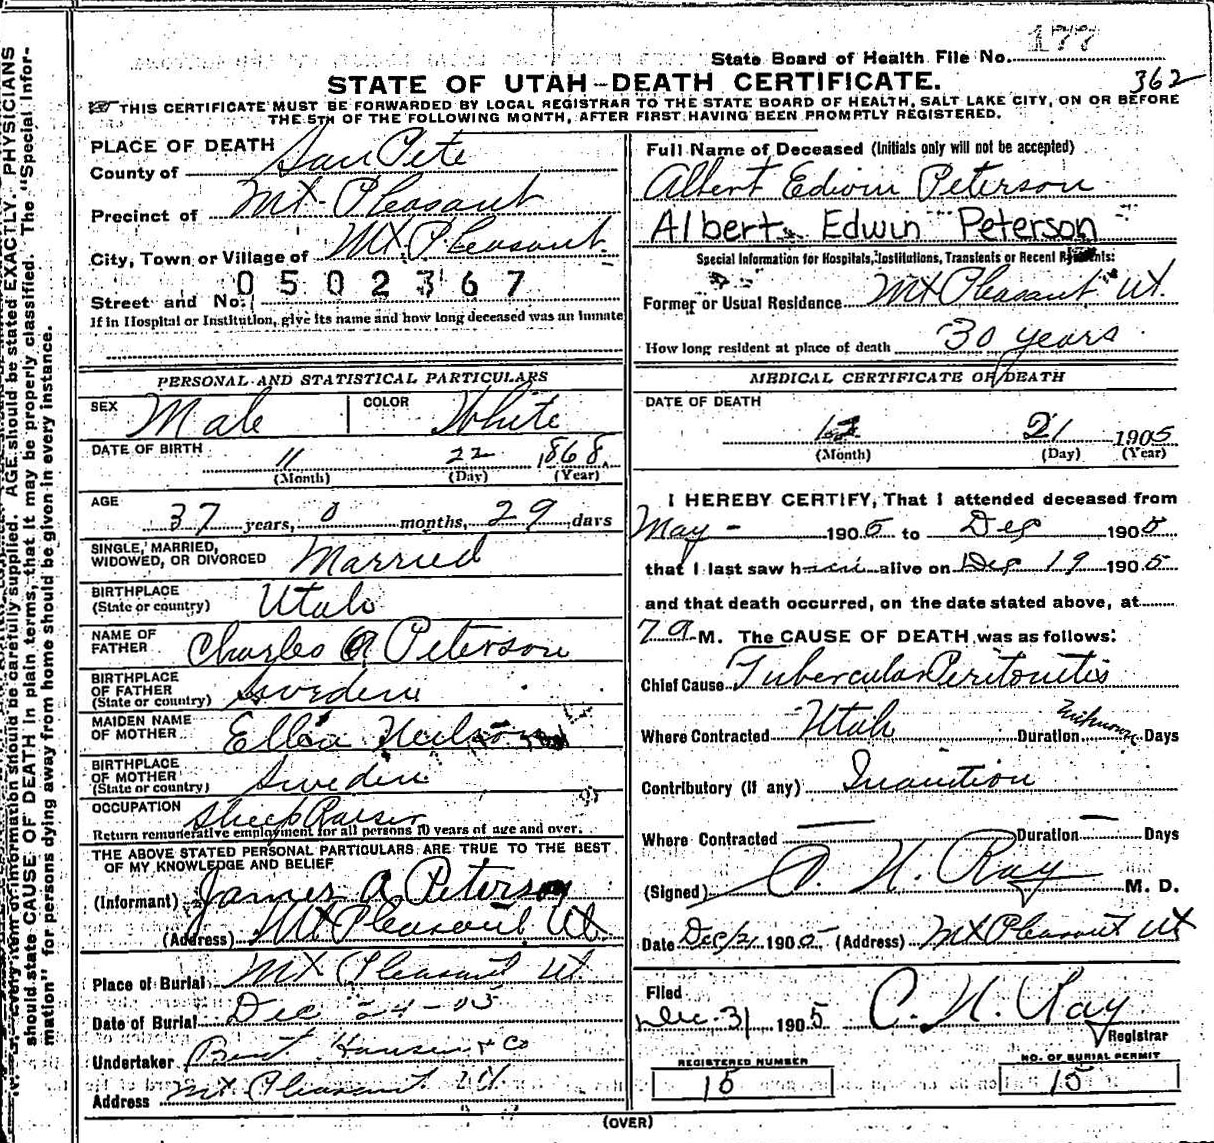 177
State Board of Health File No.
STATE OF UTAH—DEATH CERTIFICATE.
362
THIS CERTIFICATE MUST BE FORWARDED BY LOCAL REGISTRAR TO THE STATE BOARD OF HEALTH, SALT LAKE CITY, ON OR BEFORE
THE 5TH OF THE FOLLOWING MONTH, AFTER FIRST HAVING BEEN PROMPTLY REGISTERED.
PLACE OF DEATH
County of San Pete
Precinct of Mt Pleasant
City, Town or Village of Mt Pleasant
0502367
Street and No.
If in Hospital or Institution, give its name and how long deceased was an inmate
PERSONAL AND STATISTICAL PARTICULARS
SEX Male COLOR White
DATE OF BIRTH 11 22 1868
(Month) (Day) (Year)
AGE 37 years, 0 months, 29 days
SINGLE, MARRIED,
WIDOWED, OR DIVORCED Married
BIRTHPLACE
(State or country) Utah
NAME OF
FATHER Charles A Peterson
BIRTHPLACE
OF FATHER
(State or country) Sweden
MAIDEN NAME
OF MOTHER Ellen
BIRTHPLACE
OF MOTHER
(State or country) Sweden
OCCUPATION Sheep Raiser
Return remunerative employment for all persons 10 years of age and over.
THE ABOVE STATED PERSONAL PARTICULARS ARE TRUE TO THE BEST
OF MY KNOWLEDGE AND BELIEF
(Informant) James A Peterson
(Address) Mt Pleasant Ut.
Place of Burial Mt Pleasant Ut
Date of Burial Dec 24-05
Undertaker Bent Hansen & Co
Address Mt Pleasant Ut
Full Name of Deceased (Initials only will not be accepted)
Albert Edwin Peterson
Albert Edwin Peterson
Special Information for Hospitals, Institutions, Transients or Recent Residents:
Former or Usual Residence Mt Pleasant Ut.
How long resident at place of death 30 years
MEDICAL CERTIFICATE OF DEATH
DATE OF DEATH
12 21 1905
(Month) (Day) (Year)
I HEREBY CERTIFY, That I attended deceased from
May - 1905 to Dec 1905
that I last saw him alive on Dec 19 1905
and that death occurred, on the date stated above, at
7 a M. The CAUSE OF DEATH was as follows:
Chief Cause Tubercular Peritonitis
Where Contracted Utah Duration Unknown Days
Contributory (if any) Inanition
Where Contracted Duration Days
(Signed) A. N. Ray M. D.
Date Dec/21 1905 (Address) Mt Pleasant Ut
Filed
Dec 31 1905 C. N. Ray
Registrar
REGISTERED NUMBER
15
NO. OF BURIAL PERMIT
15
(OVER)
every item of information should be carefully supplied. AGE should be stated EXACTLY. PHYSICIANS
should state CAUSE OF DEATH in plain terms, that it may be properly classified. The "Special Infor-
mation" for persons dying away from home should be given in every instance.